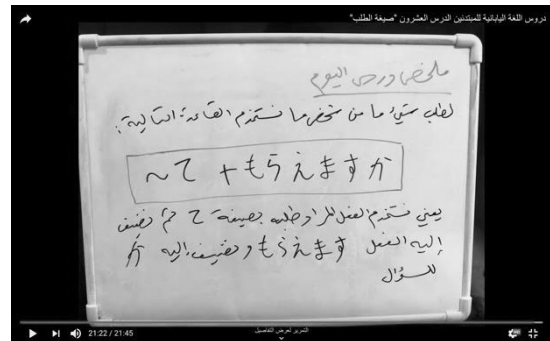 دروس اللغة اليابانية للمبتدئين الدرس العشرون "صيغة الطلب"
ملخص درس اليوم
لطلب شيء ما من شخص ما نستخدم القاعدة التالية:
~て + もらえますか
يعني نستخدم الفعل المراد طلبه بصيغة て ثم نضيف
إليه الفعل もらえます ونضيف إليه か
للسؤال
21:22 / 21:45
التمرير لعرض التفاصيل